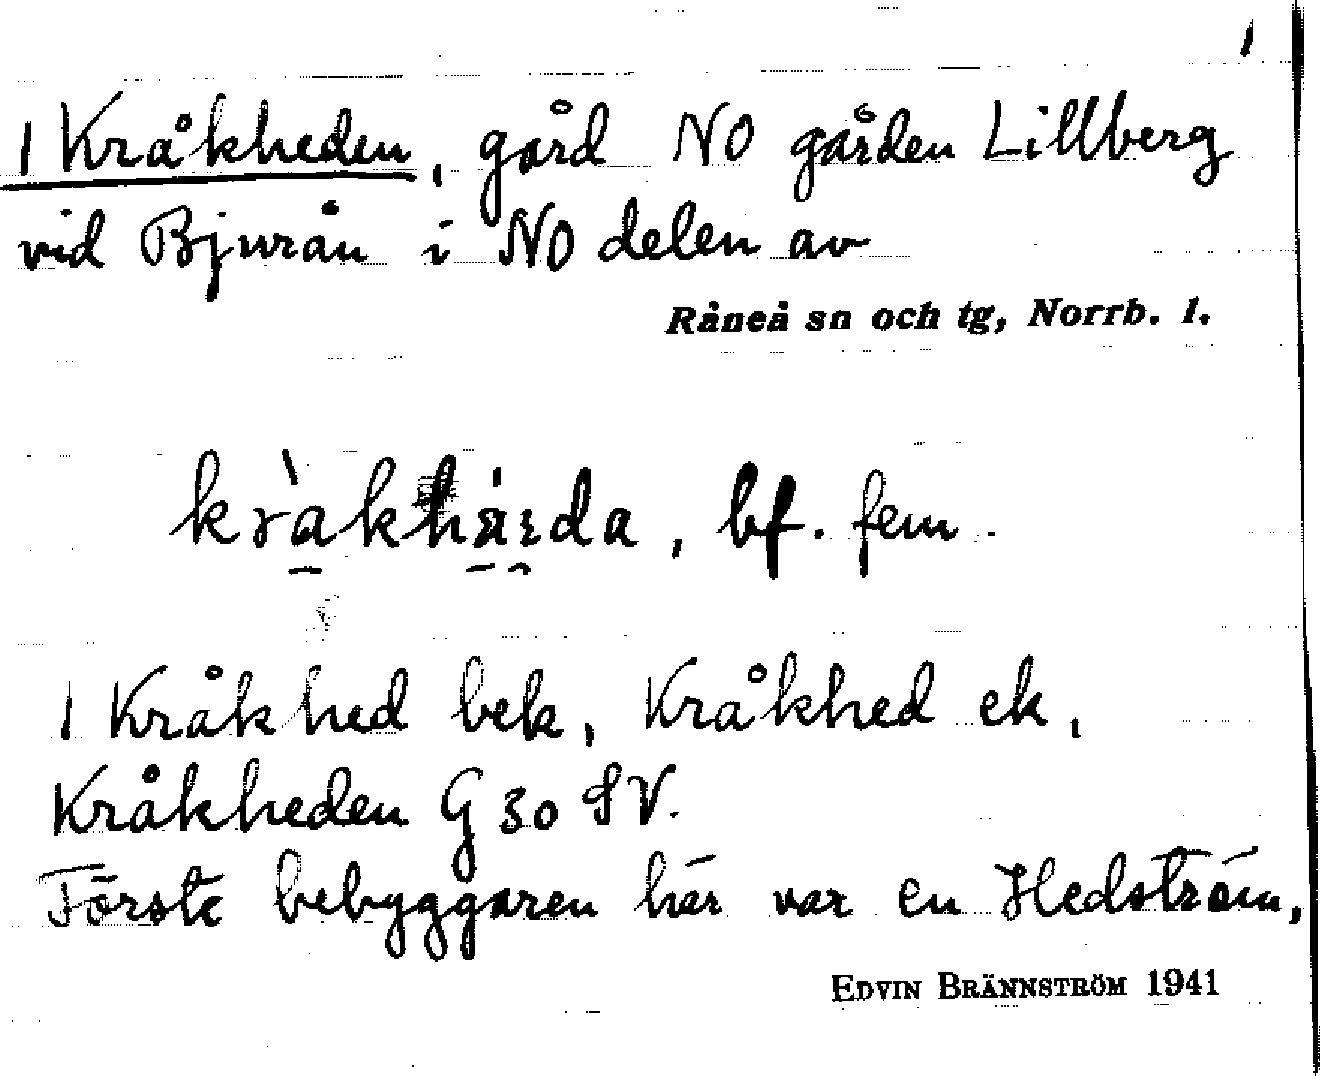 1
1 Kråkheden, gård NO gården Lillberg
vid Bjurån i NO delen av
Råneå sn och tg, Norrb. l.
kràkhárda, bf. fem.
1 Kråkhed bek, Kråkhed ek,
Kråkheden G 30 SV.
Förste bebyggaren här var en Hedström,
EDVIN BRÄNNSTRÖM 1941